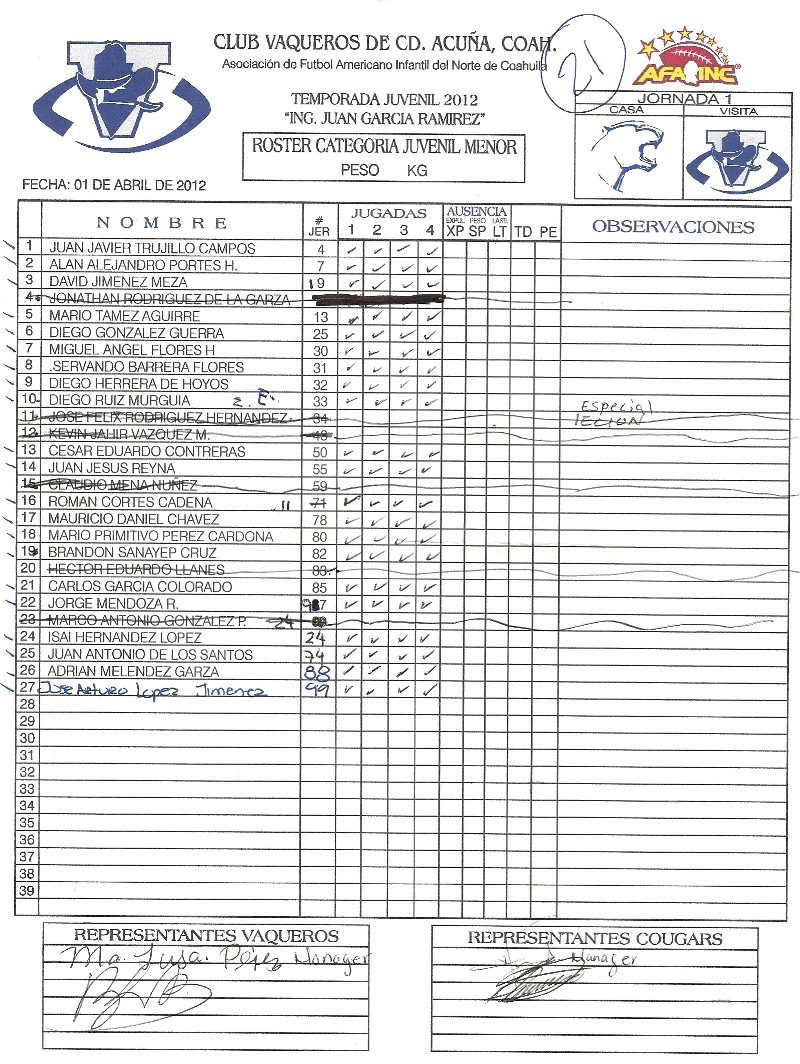 CLUB VAQUEROS DE CD. ACUÑA, COAH.
Asociación de Futbol Americano Infantil del Norte de Coahuila
21
AFA INC
TEMPORADA JUVENIL 2012
"ING. JUAN GARCIA RAMIREZ"
JORNADA 1
CASA VISITA
ROSTER CATEGORIA JUVENIL MENOR
PESO KG
FECHA: 01 DE ABRIL DE 2012
NOMBRE # JER JUGADAS 1 2 3 4 AUSENCIA EXPUL PESO LAST. XP SP LT TD PE OBSERVACIONES
1 JUAN JAVIER TRUJILLO CAMPOS 4 ✓ ✓ ✓ ✓
2 ALAN ALEJANDRO PORTES H. 7 ✓ ✓ ✓ ✓
3 DAVID JIMENEZ MEZA 19 ✓ ✓ ✓ ✓
4 JONATHAN RODRIGUEZ DE LA GARZA
5 MARIO TAMEZ AGUIRRE 13 ✓ ✓ ✓ ✓
6 DIEGO GONZALEZ GUERRA 25 ✓ ✓ ✓ ✓
7 MIGUEL ANGEL FLORES H 30 ✓ ✓ ✓ ✓
8 .SERVANDO BARRERA FLORES 31 ✓ ✓ ✓ ✓
9 DIEGO HERRERA DE HOYOS 32 ✓ ✓ ✓ ✓
10 DIEGO RUIZ MURGUIA 2. E. 33 ✓ ✓ ✓ ✓ Especial
11 JOSE FELIX RODRIGUEZ HERNANDEZ 34 LECION
12 KEVIN JAHIR VAZQUEZ M. 43
13 CESAR EDUARDO CONTRERAS 50 ✓ ✓ ✓ ✓
14 JUAN JESUS REYNA 55 ✓ ✓ ✓ ✓
15 CLAUDIO MENA NUÑEZ 59
16 ROMAN CORTES CADENA 11 71 ✓ ✓ ✓ ✓
17 MAURICIO DANIEL CHAVEZ 78 ✓ ✓ ✓ ✓
18 MARIO PRIMITIVO PEREZ CARDONA 80 ✓ ✓ ✓ ✓
19 BRANDON SANAYEP CRUZ 82 ✓ ✓ ✓ ✓
20 HECTOR EDUARDO LLANES 83
21 CARLOS GARCIA COLORADO 85 ✓ ✓ ✓ ✓
22 JORGE MENDOZA R. ✓ ✓ ✓ ✓
23 MARCO ANTONIO GONZALEZ P. 24
24 ISAI HERNANDEZ LOPEZ 24 ✓ ✓ ✓ ✓
25 JUAN ANTONIO DE LOS SANTOS 74 ✓ ✓ ✓ ✓
26 ADRIAN MELENDEZ GARZA 88 ✓ ✓ ✓ ✓
27 Jose Arturo Lopez Jimenez 99 ✓ ✓ ✓ ✓
28
29
30
31
32
33
34
35
36
37
38
39
REPRESENTANTES VAQUEROS
Ma. Luisa Pérez Manager
REPRESENTANTES COUGARS
Manager